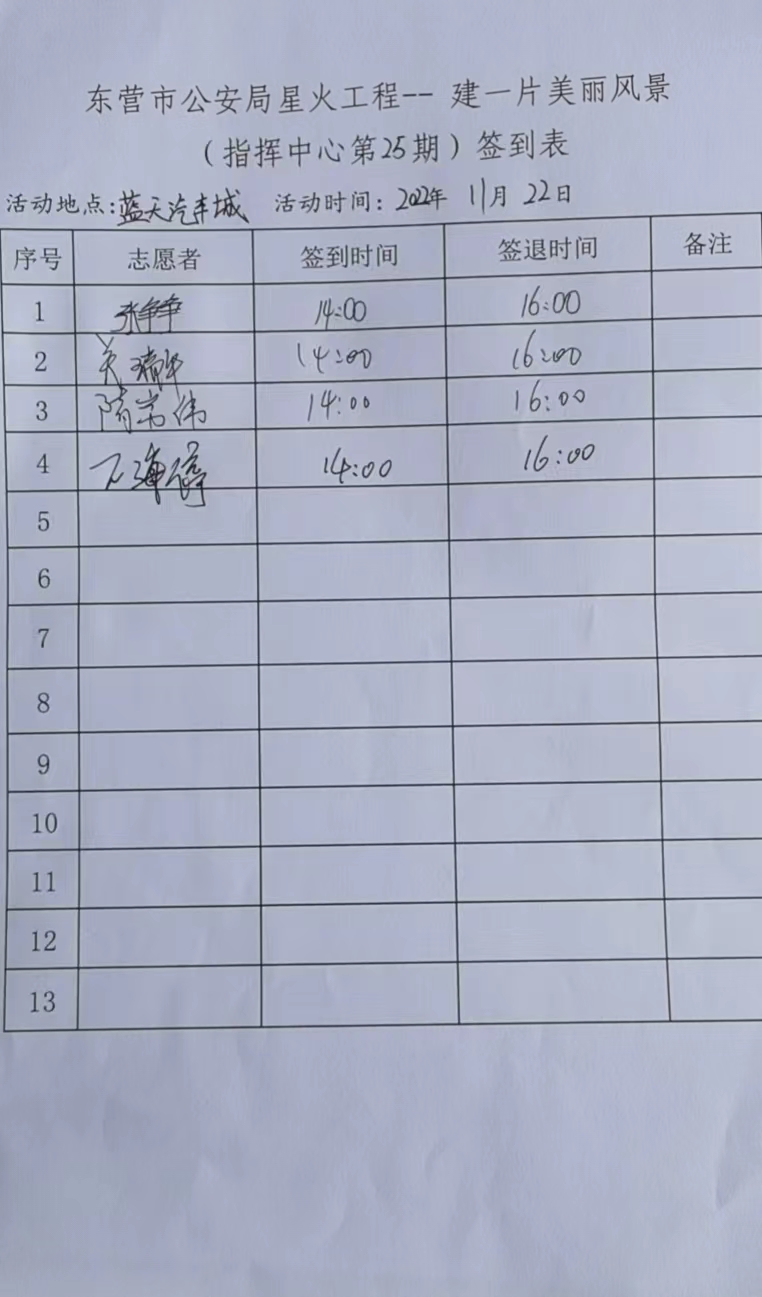 东营市公安局星火工程-- 建一片美丽风景
（指挥中心第25期）签到表
活动地点:蓝天汽车城 活动时间: 2022年 11月 22日
序号 志愿者 签到时间 签退时间 备注
1 张争争 14:00 16:00
2 14:00 16:00
3 隋志伟 14:00 16:00
4 14:00 16:00
5
6
7
8
9
10
11
12
13